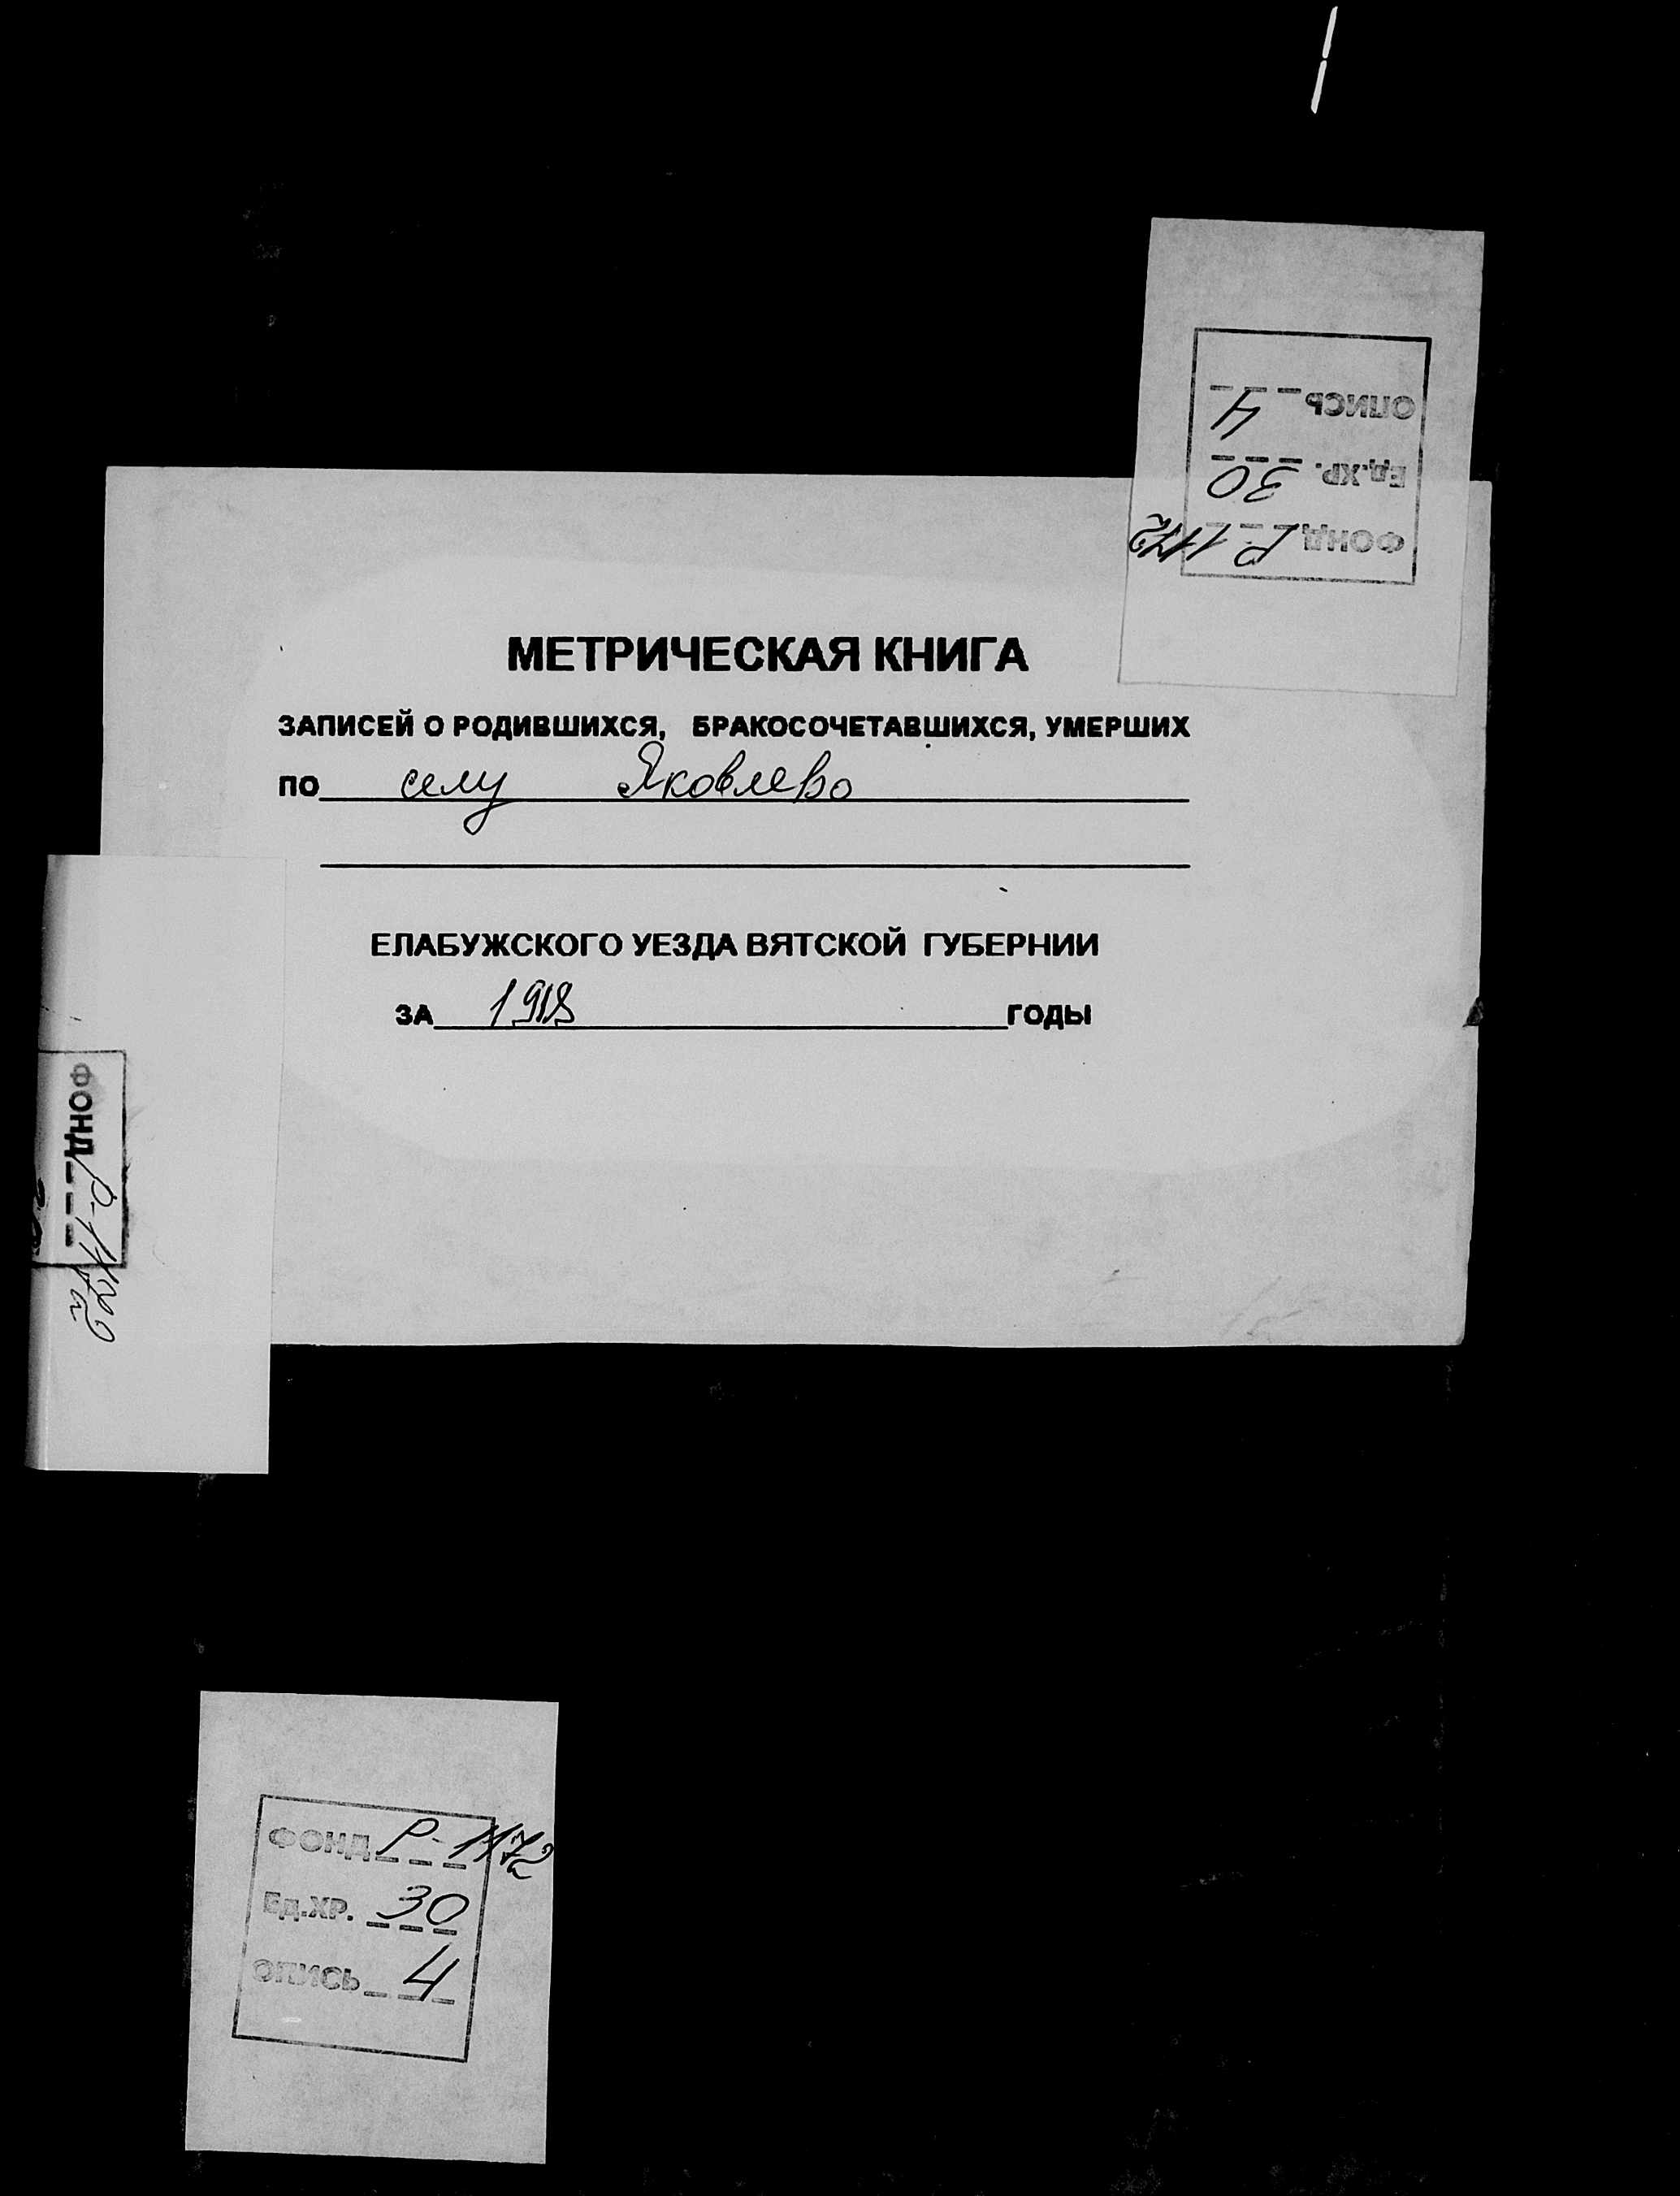 ОПИСЬ 4
Ед.ХР. 30
ФОНД Р-1172
МЕТРИЧЕСКАЯ КНИГА
ЗАПИСЕЙ О РОДИВШИХСЯ, БРАКОСОЧЕТАВШИХСЯ, УМЕРШИХ
ПО селу Яковлево
ЕЛАБУЖСКОГО УЕЗДА ВЯТСКОЙ ГУБЕРНИИ
ЗА 1918 ГОДЫ
ФОНД Р-1172
ФОНД Р-1172
Ед.ХР. 30
ОПИСЬ 4